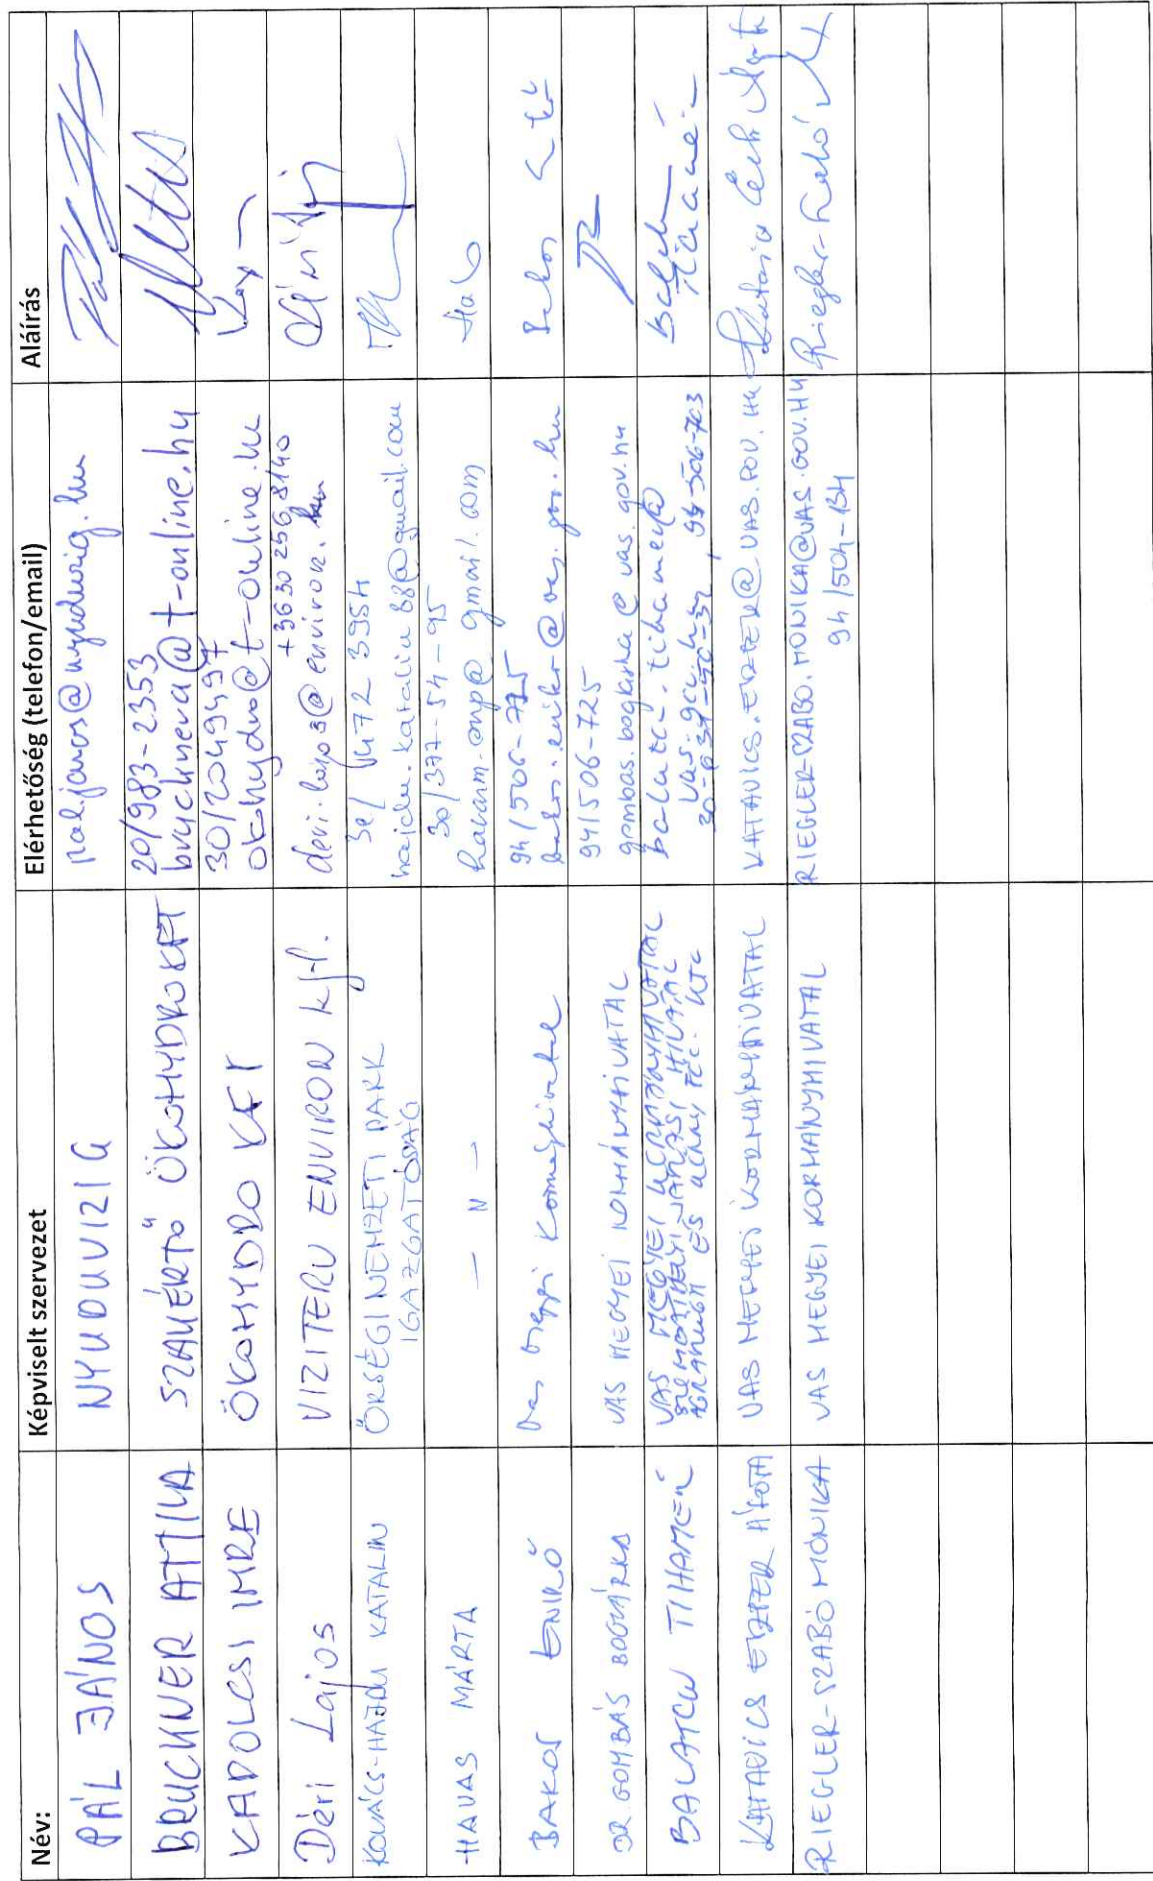 Név: Képviselt szervezet Elérhetőség (telefon/email) Aláírás
PÁL JÁNOS NYUDUVIZIG pal.janos@nyuduvizig.hu
BRUCKNER ATTILA SZAKÉRTŐ ÖKOHYDRO KFT 20/983-2353
bruckneva@t-online.hu
KADOLCSI IMRE ÖKOHYDRO KFT 30/2049497
okohydro@t-online.hu
Déri Lajos VIZITERV ENVIRON Kft. +36302568140
deri.lajos@environ.hu
KOVÁCS-HAJDU KATALIN ŐRSÉGI NEMZETI PARK 30/472 3954
IGAZGATÓSÁG hajdu.katalin88@gmail.com
HAVAS MÁRTA — 〃 — 30/377-54-95
havasm.onp@gmail.com
BAKOS ENIKŐ Vas Megyei Kormányhivatal 94/506-725
bakos.eniko@vas.gov.hu Bakos Enikő
DR GOMBÁS BOGLÁRKA VAS MEGYEI KORMÁNYHIVATAL 94/506-725
gombas.boglarka@vas.gov.hu
BALATCU TIHAMÉR VAS MEGYEI KORMÁNYHIVATAL
JÁRÁSI HIVATAL
94-506-703
KATAVICS ESZTER ÁGOTA VAS MEGYEI KORMÁNYHIVATAL KATAVICS.ESZTER@VAS.GOV.HU
RIEGLER-SZABÓ MÓNIKA VAS MEGYEI KORMÁNYHIVATAL RIEGLER-SZABO.MONIKA@VAS.GOV.HU
94/504-134